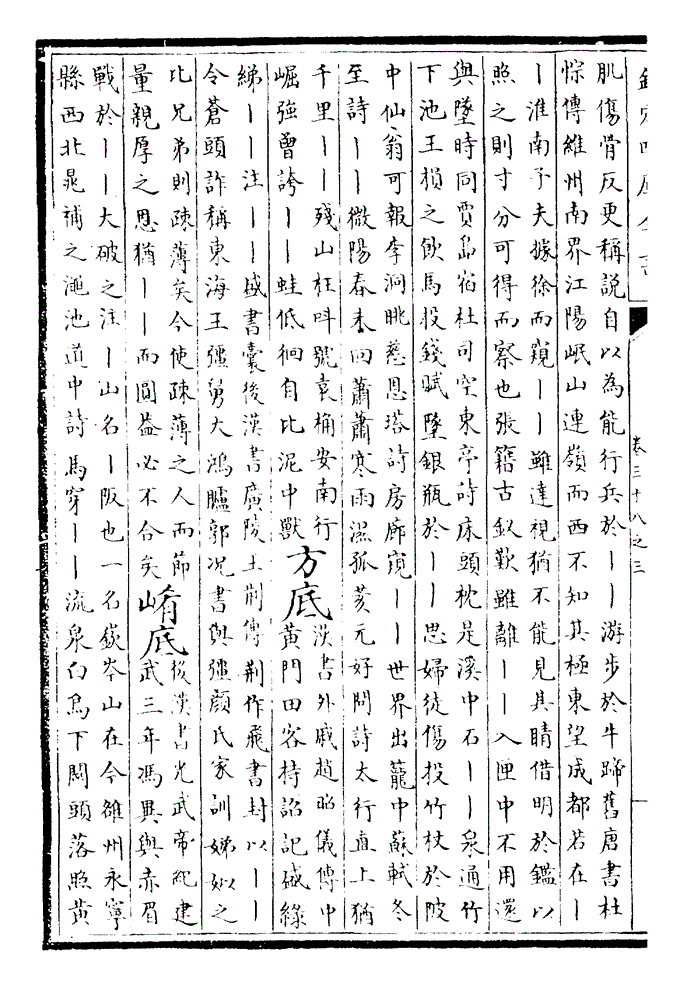 欽定四庫全書
卷三十八之三
肌傷骨反更稱說自以為能行兵於丨丨游步於牛蹄舊唐書杜
悰傳維州南界江陽岷山連嶺而西不知其極東望成都若在丨
丨淮南子夫據徐而窺丨丨雖達視猶不能見其睛借明於鑑以
照之則寸分可得而察也張籍古釵歎雖離丨丨入匣中不用還
與墜時同賈島宿杜司空東亭詩床頭枕是溪中石丨丨泉通竹
下池王損之飲馬投錢賦墜銀瓶於丨丨思婦徒傷投竹杖於陂
中仙翁可報李洞眺慈恩塔詩房廊窺丨丨世界出籠中蘇軾冬
至詩丨丨微陽春未回蕭蕭寒雨濕孤荄元好問詩太行直上猶
千里丨丨殘山枉叫號袁桷安南行
崛強曾誇丨丨蛙低徊自比泥中獸
方底
漢書外戚趙昭儀傳中
黃門田客持詔記盛綠
綈丨丨注丨丨盛書囊後漢書廣陵王荊傳荊作飛書封以丨丨
令蒼頭詐稱東海王彊舅大鴻臚郭况書與彊顏氏家訓娣姒之
比兄弟則疎薄矣今使疎薄之人而節
量親厚之恩猶丨丨而圓蓋必不合矣
崤底
後漢書光武帝紀建
武三年馮異與赤眉
戰於丨丨大破之注丨山名丨阪也一名嶔岑山在今雒州永寧
縣西北晁補之澠池道中詩馬穿丨丨流泉白鳥下關頭落照黃